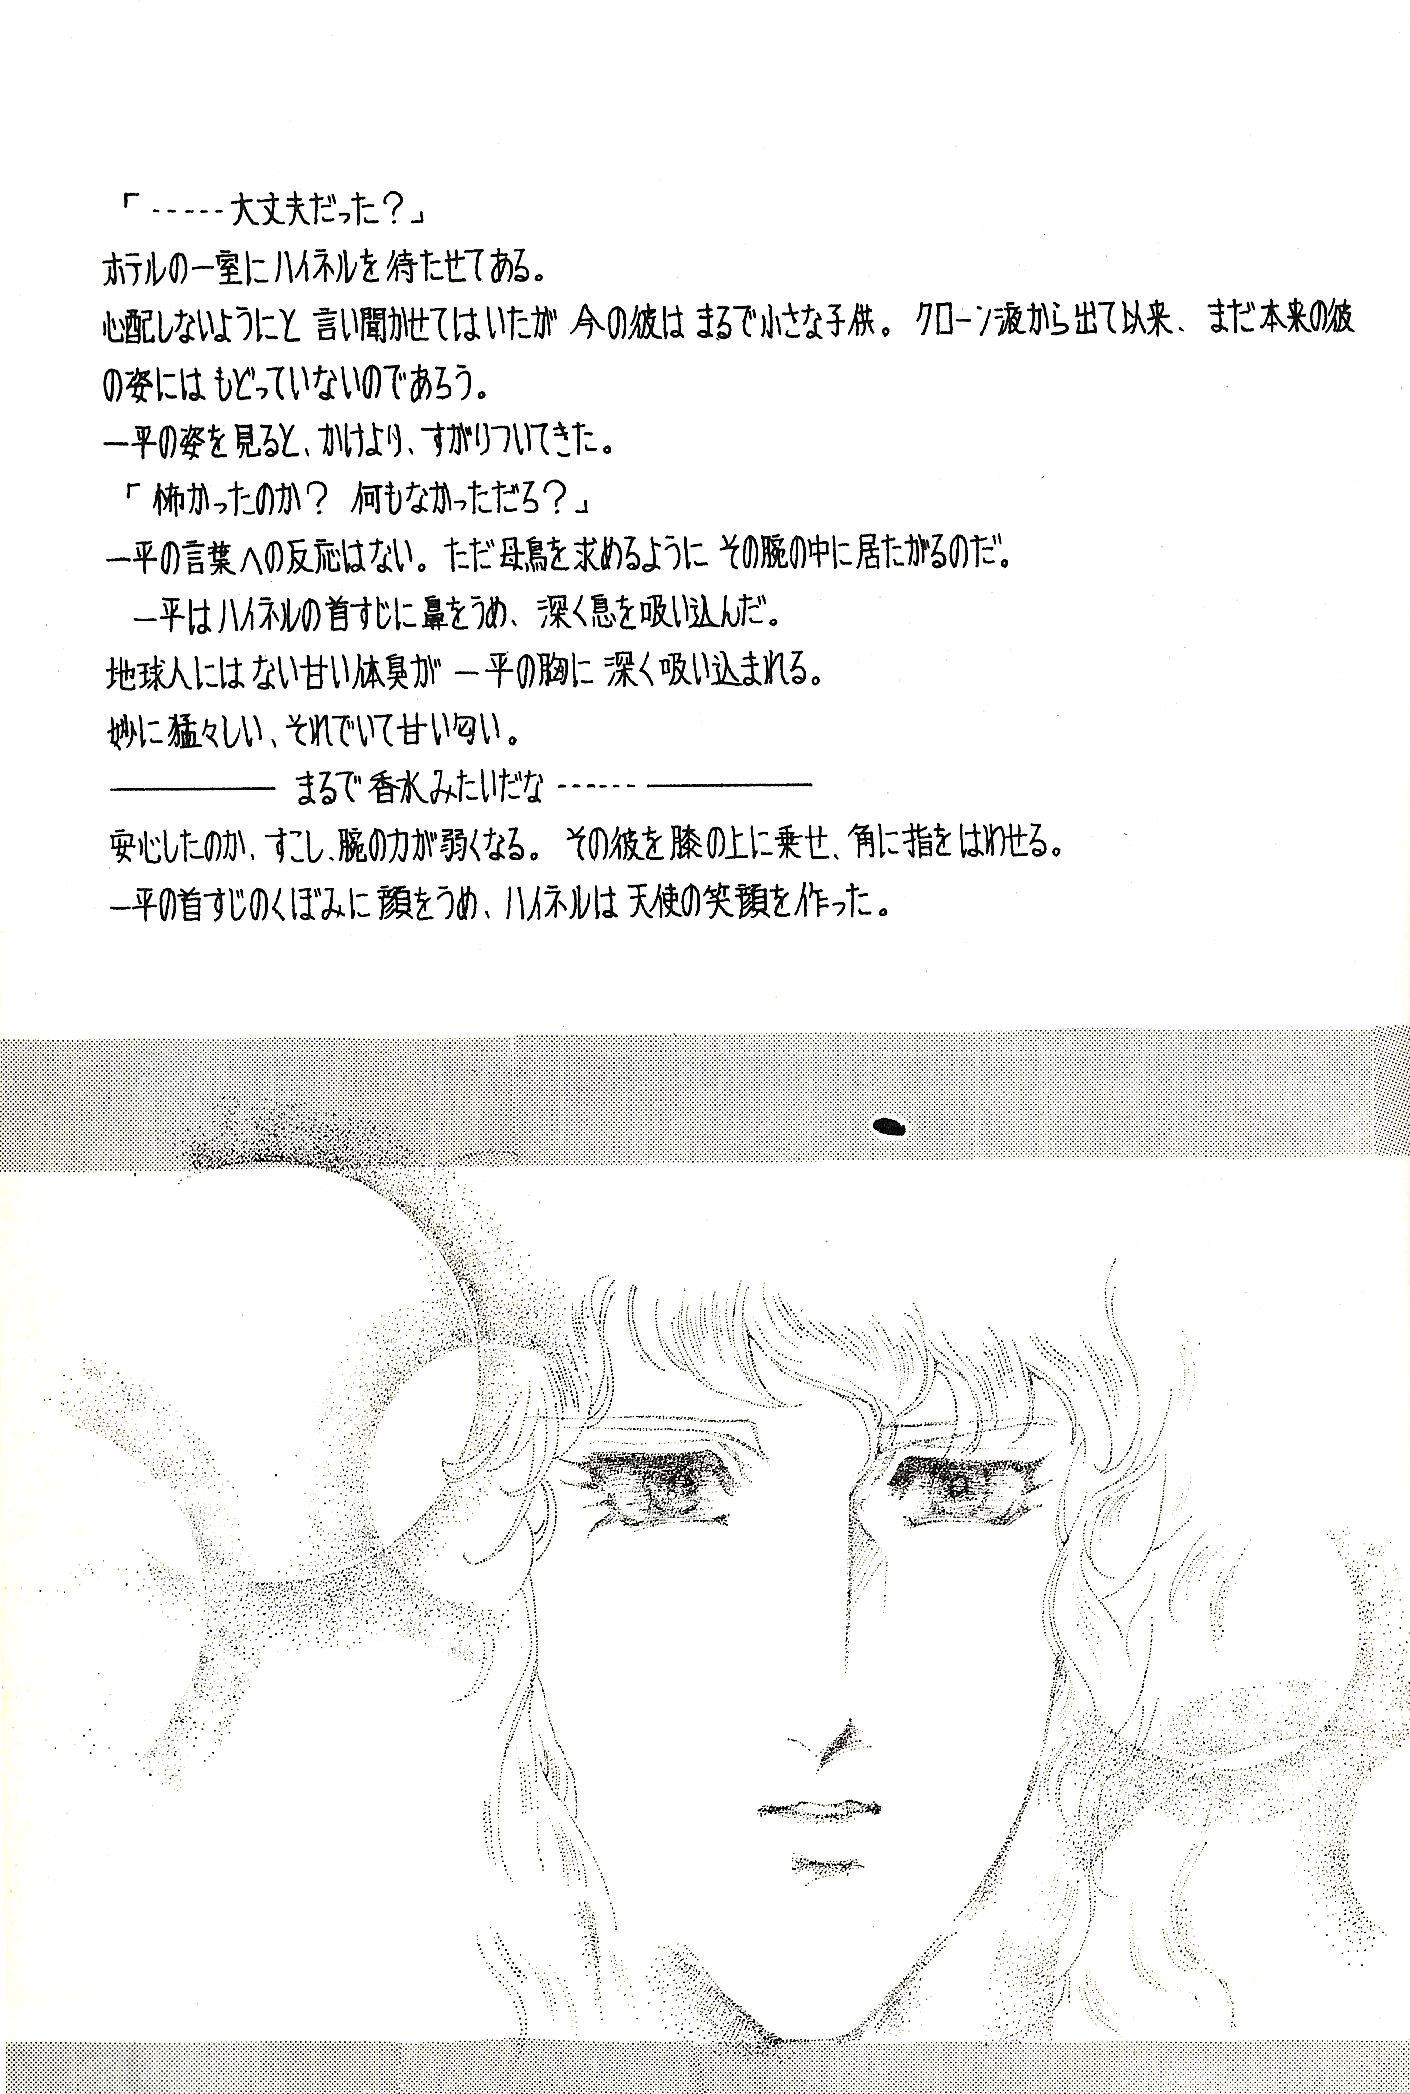 「-----大丈夫だった？」
ホテルの一室にハイネルを待たせてある。
心配しないようにと言い聞かせてはいたが今の彼はまるで小さな子供。クローン液から出て以来、まだ本来の彼
の姿にはもどっていないのであろう。
一平の姿を見ると、かけより、すがりついてきた。
「怖かったのか？何もなかっただろ？」
一平の言葉への反応はない。ただ母鳥を求めるようにその腕の中に居たがるのだ。
一平はハイネルの首すじに鼻をうめ、深く息を吸い込んだ。
地球人にはない甘い体臭が一平の胸に深く吸い込まれる。
妙に猛々しい、それでいて甘い匂い。
――――― まるで香水みたいだな ------―――――
安心したのか、すこし、腕の力が弱くなる。その彼を膝の上に乗せ、角に指をはわせる。
一平の首すじのくぼみに顔をうめ、ハイネルは天使の笑顔を作った。